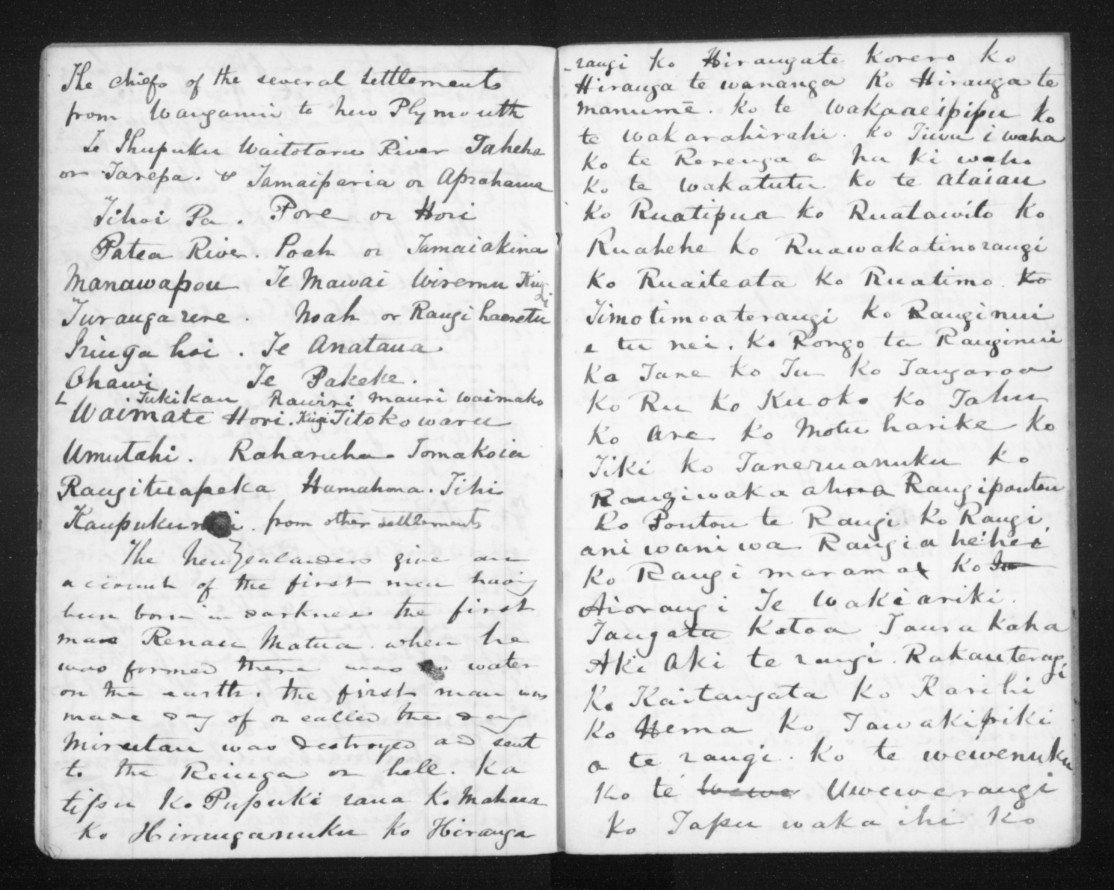 The chiefs of the several settlements
from Wanganui to New Plymouth
Te Ihupuku Waitotara River Taheha
or Tarepa. & Tamaiparia or Aprahama
Tihoi Pa. Pore or Hori
Patea River. Poah or Tamaiakina
Manawapou Te Mawai Wiremu Kingi
Turangarere. Noah or Rangi haeretu
Iringa hoi. Te Anataua
Ohawi Te Pakeke.
Tukikau Rawiri mauri waimako
Waimate Hori. Kingi Titokowaru
Umutahi. Raharuha Tomakoia
Rangituapeka Hamahona. Tihi
from other settlements
The New Zealanders give an
account of the first man having
been born in darkness the first
man Renau Matua. when he
was formed there was no water
on the earth. the first man was
made day of or called the day
Mirutau was destroyed and sent
to the Reinga or hell. Ka
tipu Ko Pupuki rana Ko Mahara
Ko Hiranganuku Ko Hiranga
rangi Ko Hirangate Korero Ko
Hiranga te wananga Ko Hiranga te
manume. Ko te wakaaeipipu Ko
te wakarahirahi. Ko Tuwu i waha
Ko te Rorenga a nu Ki waho
Ko te wakatutu Ko te ataiau
Ko Ruatipua Ko Ruatawito Ko
Ruahehe Ko Ruawakatinorangi
Ko Ruaiteata Ko Ruatimo. Ko
Timotimoaterangi Ko Ranginui
e tu nei. Ko Rongo ta Ranginui
Ka Tane Ko Tu Ko Tangaroa
Ko Ru Ko Kuoko Ko Tahu
Ko are Ko Motuharike Ko
Tiki Ko Taneruanuku Ko
Rangiwaka Rangipoutou
Ko Poutou te Rangi Ko Rangi
ani wani wa Rangia hehea
Ko Rangi marama Ko
Aiorangi Te Wakiariki.
Tangata Katoa Taurakaha
Aki Aki te rangi. Rakauteragi
Ko Kaitangata Ko Karihi
Ko Hema Ko Tawakipiki
a te rangi. Ko te wewenuku
Ko te wewe Uwewerangi
Ko Tapu waka ihi Ko